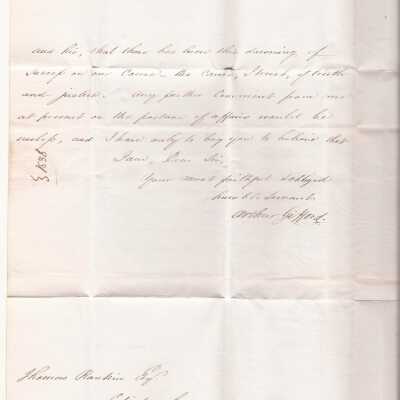 and Sir, that there has been this dawning of
Success in our Cause – the Cause, I trust, of truth
and justice. Any further Comment from me
at present on the posture of affairs would be
useless, and I have only to beg you to believe that
I am, Dear Sir,
Your most faithful & obliged
humble Servant
Arthur Gifford.
Thomas Rankin Esq